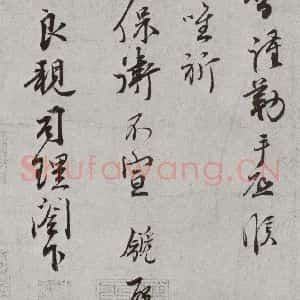 謹勒手啓候
唯祈
保衛不宣 鏡再
良親司理閣下
Shufawang.CN